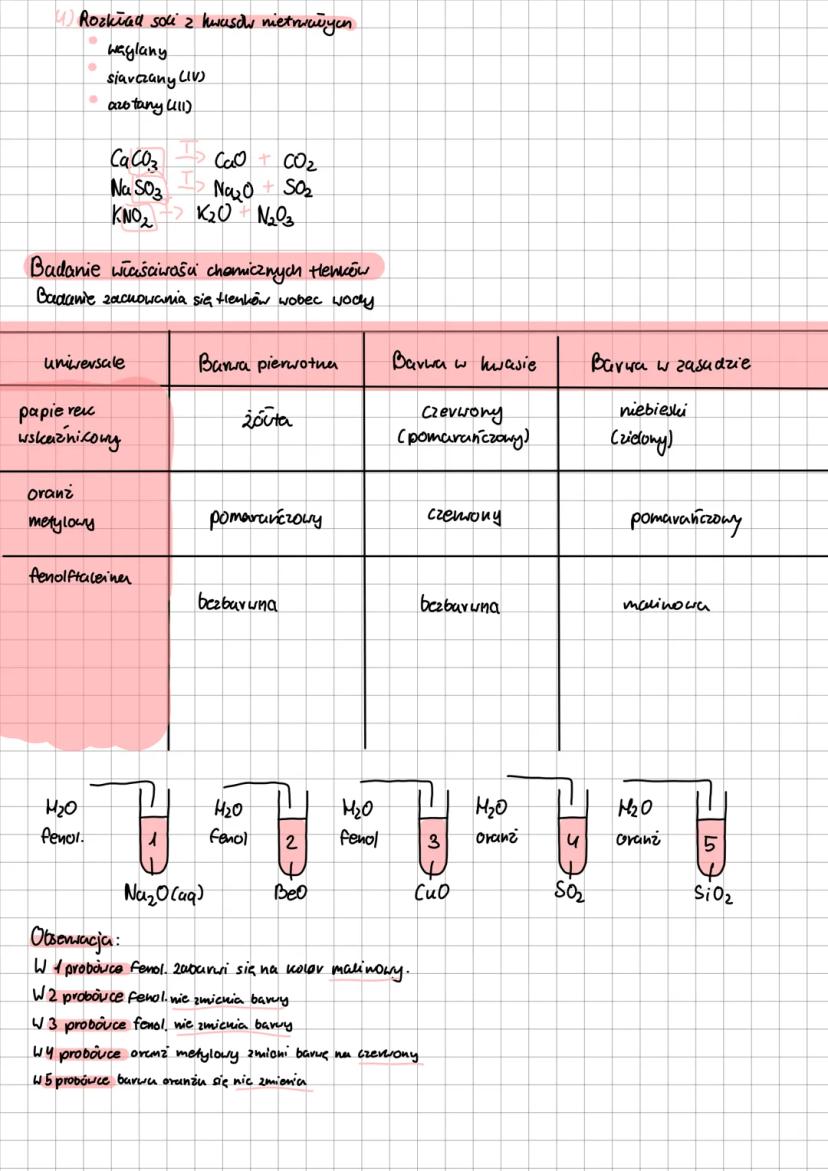 4) Rozkład soli z kwasów nietrwałych
• węglany
• siarczany (IV)
• azotany (III)
CaCO₃ T→ CaO + CO₂
NaSO₃ T→ Na₂O + SO₂
KNO₂ → K₂O + N₂O₃
Badanie właściwości chemicznych tlenków
Badanie zachowania się tlenków wobec wody
uniwersale Barwa pierwotna Barwa w kwasie Barwa w zasadzie
papierek żółta czerwony niebieski
wskaźnikowy (pomarańczowy) (zielony)
oranż
metylowy pomarańczowy czerwony pomarańczowy
fenolftaleina
bezbarwna bezbarwna malinowa
H₂O H₂O H₂O H₂O H₂O
fenol. 1 fenol 2 fenol 3 oranż 4 oranż 5
Na₂O(aq) BeO CuO SO₂ SiO₂
Obserwacja:
W 1 probówce fenol. zabarwi się na kolor malinowy.
W 2 probówce fenol. nie zmienia barwy
W 3 probówce fenol. nie zmienia barwy
W 4 probówce oranż metylowy zmieni barwę na czerwony
W 5 probówce barwa oranżu się nie zmienia